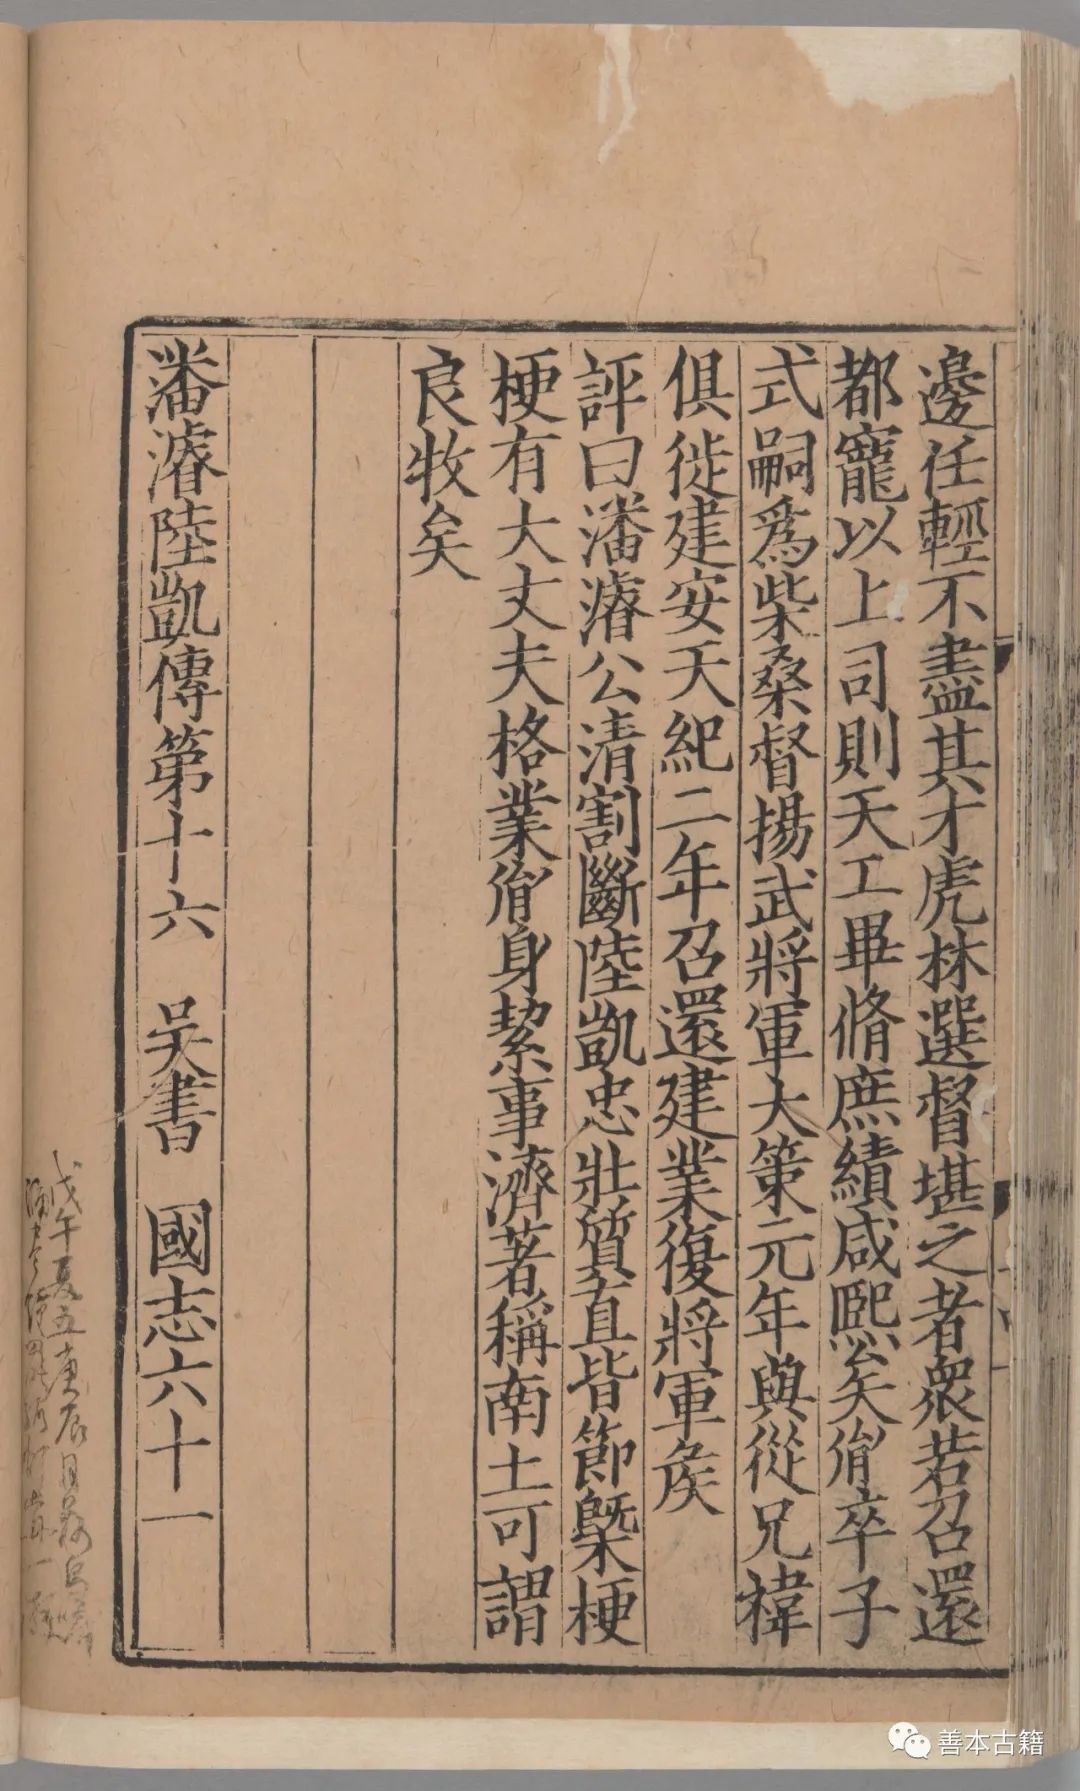 邊任輕不盡其才虎林選督堪之者衆若召還
都寵以上司則天工畢脩庶績咸熙矣𦙍卒子
式嗣爲柴桑督揚武將軍大策元年與從兄禕
俱徙建安天紀二年召還建業復將軍矦
評曰潘濬公清割斷陸凱忠壯質直皆節槩梗
梗有大丈夫格業𦙍身絜事濟著稱南土可謂
良牧矣
潘濬陸凱傳第十六 吳書 國志六十一
戊午夏五庚辰日
善本古籍